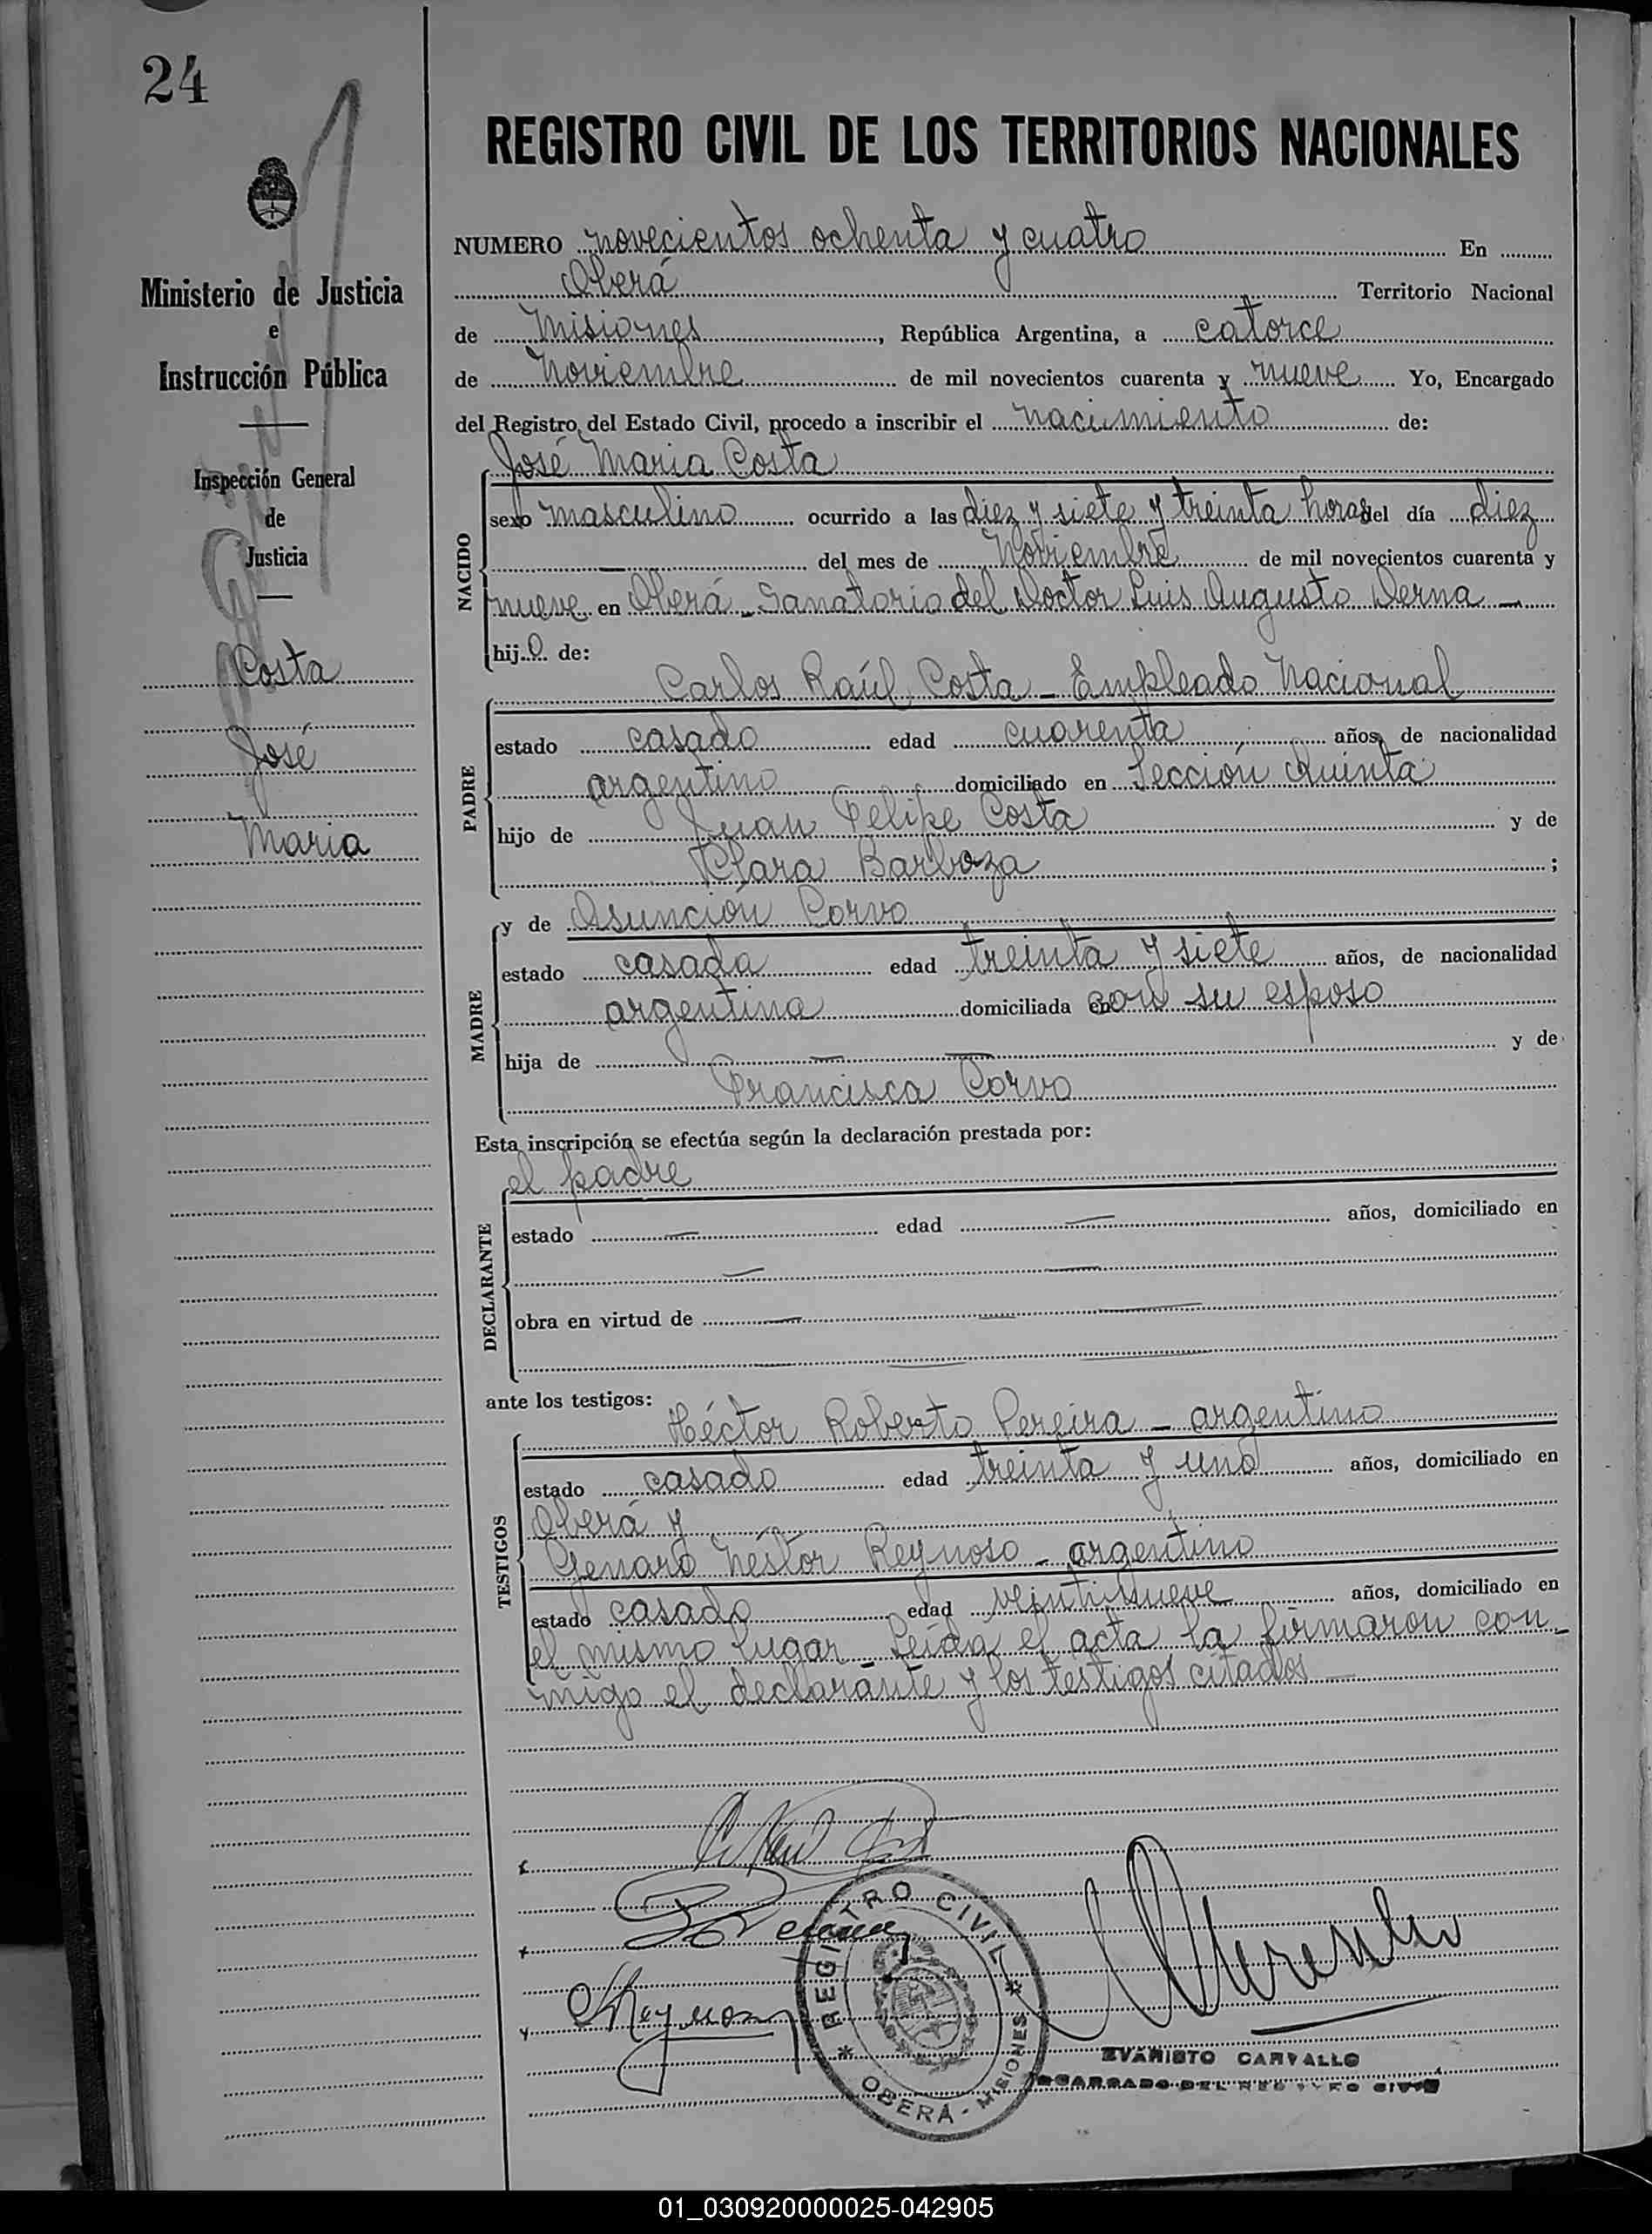 24
Ministerio de Justicia
e
Instrucción Pública
Inspección General
de
Justicia
Costa
José
Maria
REGISTRO CIVIL DE LOS TERRITORIOS NACIONALES
NUMERO novecientos ochenta y cuatro En
Oberá Territorio Nacional
de Misiones, República Argentina, a catorce
de Noviembre de mil novecientos cuarenta y nueve Yo, Encargado
del Registro del Estado Civil, procedo a inscribir el nacimiento de:
José Maria Costa
NACIDO
sexo masculino ocurrido a las diez y siete y treinta horas del día diez
del mes de Noviembre de mil novecientos cuarenta y
nueve en Oberá - Sanatorio del Doctor Luis Augusto Derna -
hijo de:
Carlos Raúl Costa - Empleado Nacional
PADRE
estado casado edad cuarenta años, de nacionalidad
argentino domiciliado en Sección Quinta
hijo de Juan Felipe Costa y de
Clara Barboza ;
y de Asunción Corvo
MADRE
estado casada edad treinta y siete años, de nacionalidad
argentina domiciliada en con su esposo
hija de — — y de
Francisca Corvo
Esta inscripción se efectúa según la declaración prestada por:
el padre
DECLARANTE
estado — edad — años, domiciliado en
obra en virtud de —
ante los testigos:
Héctor Roberto Pereira - argentino
TESTIGOS
estado casado edad treinta y uno años, domiciliado en
Oberá y
Genaro Néstor Reynoso - argentino
estado casado edad veintinueve años, domiciliado en
el mismo lugar - Leída el acta la firmaron con-
migo el declarante y los testigos citados
REGISTRO CIVIL
OBERÁ - MISIONES
EVARISTO CARVALLO
ENCARGADO DEL REGISTRO CIVIL
01_030920000025-042905